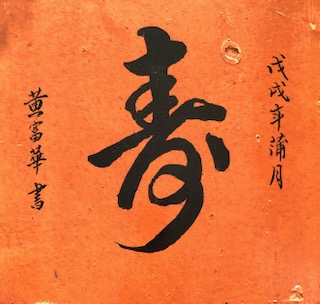 戊戌年蒲月
寿
黄富華書